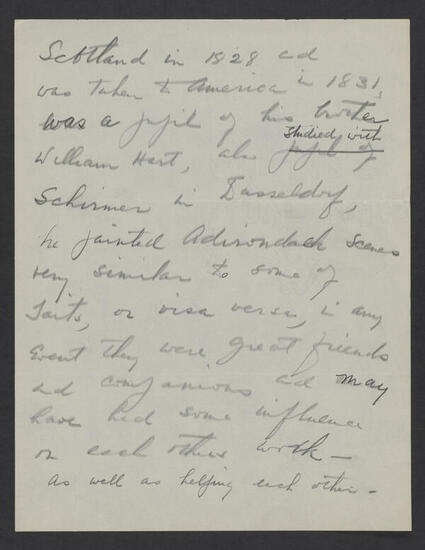 Scotland in 1828 ad
was taken to America in 1831,
was a pupil of his brother
William Hart, also pupil of studied with
Schirmer in Dusseldorf,
he painted Adirondack scenes
very similar to some of
Taits, or visa verse, in any
event they were great friends
ad companions ad may
have had some influence
on each others work —
as well as helping each other —